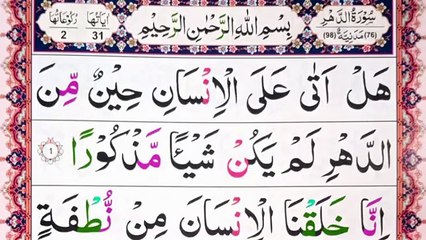 سُوْرَةُ الدَّهْرِ
(76) مَدَنِيَّةٌ (98)
بِسْمِ اللّٰهِ الرَّحْمٰنِ الرَّحِيْمِ
اٰيَاتُهَا 31
رُكُوْعَاتُهَا 2
هَلْ اَتٰى عَلَى الْاِنْسَانِ حِيْنٌ مِّنَ
الدَّهْرِ لَمْ يَكُنْ شَيْـًٔا مَّذْكُوْرًا ١
اِنَّا خَلَقْنَا الْاِنْسَانَ مِنْ نُّطْفَةٍ